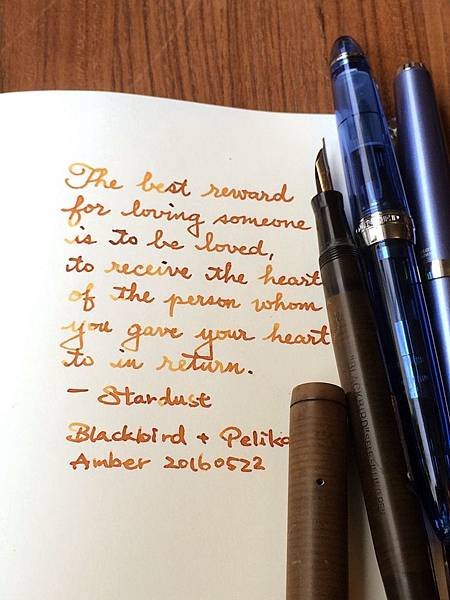 The best reward
for loving someone
is to be loved,
to receive the heart
of the person whom
you gave your heart
to in return.
— Stardust
Blackbird + Pelika
Amber 20160522
"BLACKBIRD" SELF